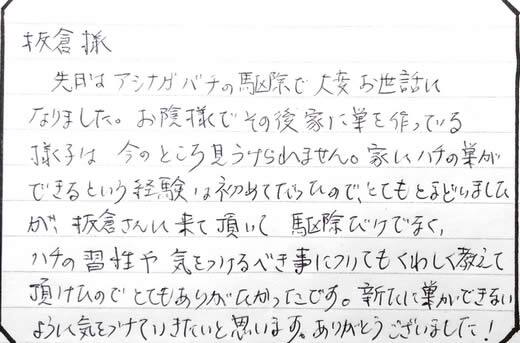 板倉様
先日は アシナガバチの駆除で 大変お世話に
なりました。お陰様で その後 家に巣を作っている
様子は 今のところ見うけられません。家にハチの巣が
できるという経験は初めてだったので、とてもとまどいました
が、板倉さんに来て頂いて 駆除だけでなく、
ハチの習性や 気をつけるべき事についてもくわしく教えて
頂けたので とてもありがたかったです。新たに巣ができない
ように気をつけていきたいと思います。ありがとうございました！